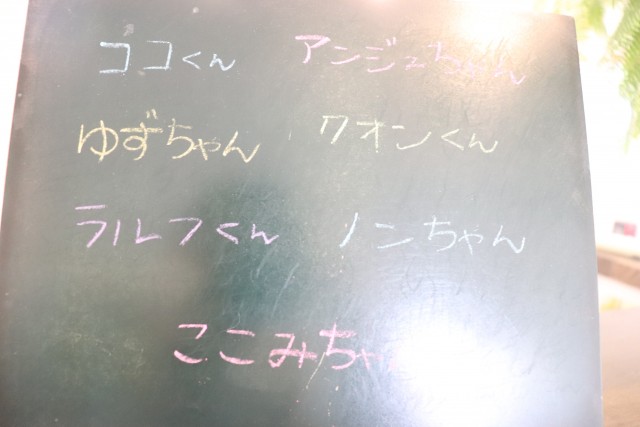 ココくん アンジュちゃん
ゆずちゃん クオンくん
ラルフくん ノンちゃん
ここみちゃ